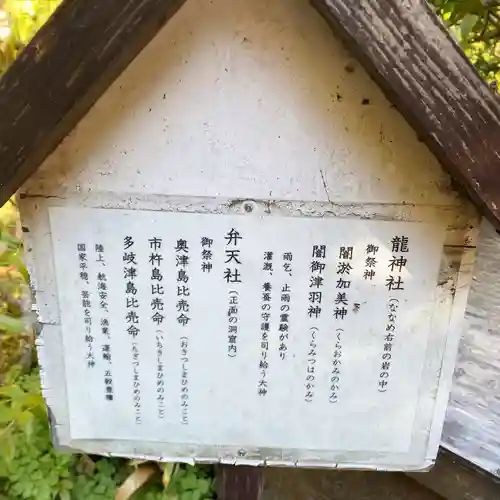 龍神社(ななめ右前の岩の中)
御祭神
闇淤加美神(くらおかみのかみ)
闇御津羽神(くらみつはのかみ)
雨乞、止雨の霊験があり
灌漑、養蚕の守護を司り給う大神
弁天社(正面の洞窟内)
御祭神
奥津島比売命(おきつしまひめのみこと)
市杵島比売命(いちきしまひめのみこと)
多岐津島比売命(たぎつしまひめのみこと)
陸上、航海安全、漁業、運輸、五穀豊穣
国家平穏、芸能を司り給う大神